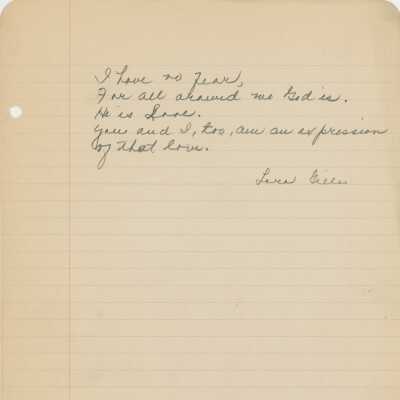 I have no fear,
For all around me God is.
He is Love.
You and I, too, am an expression
of that love.